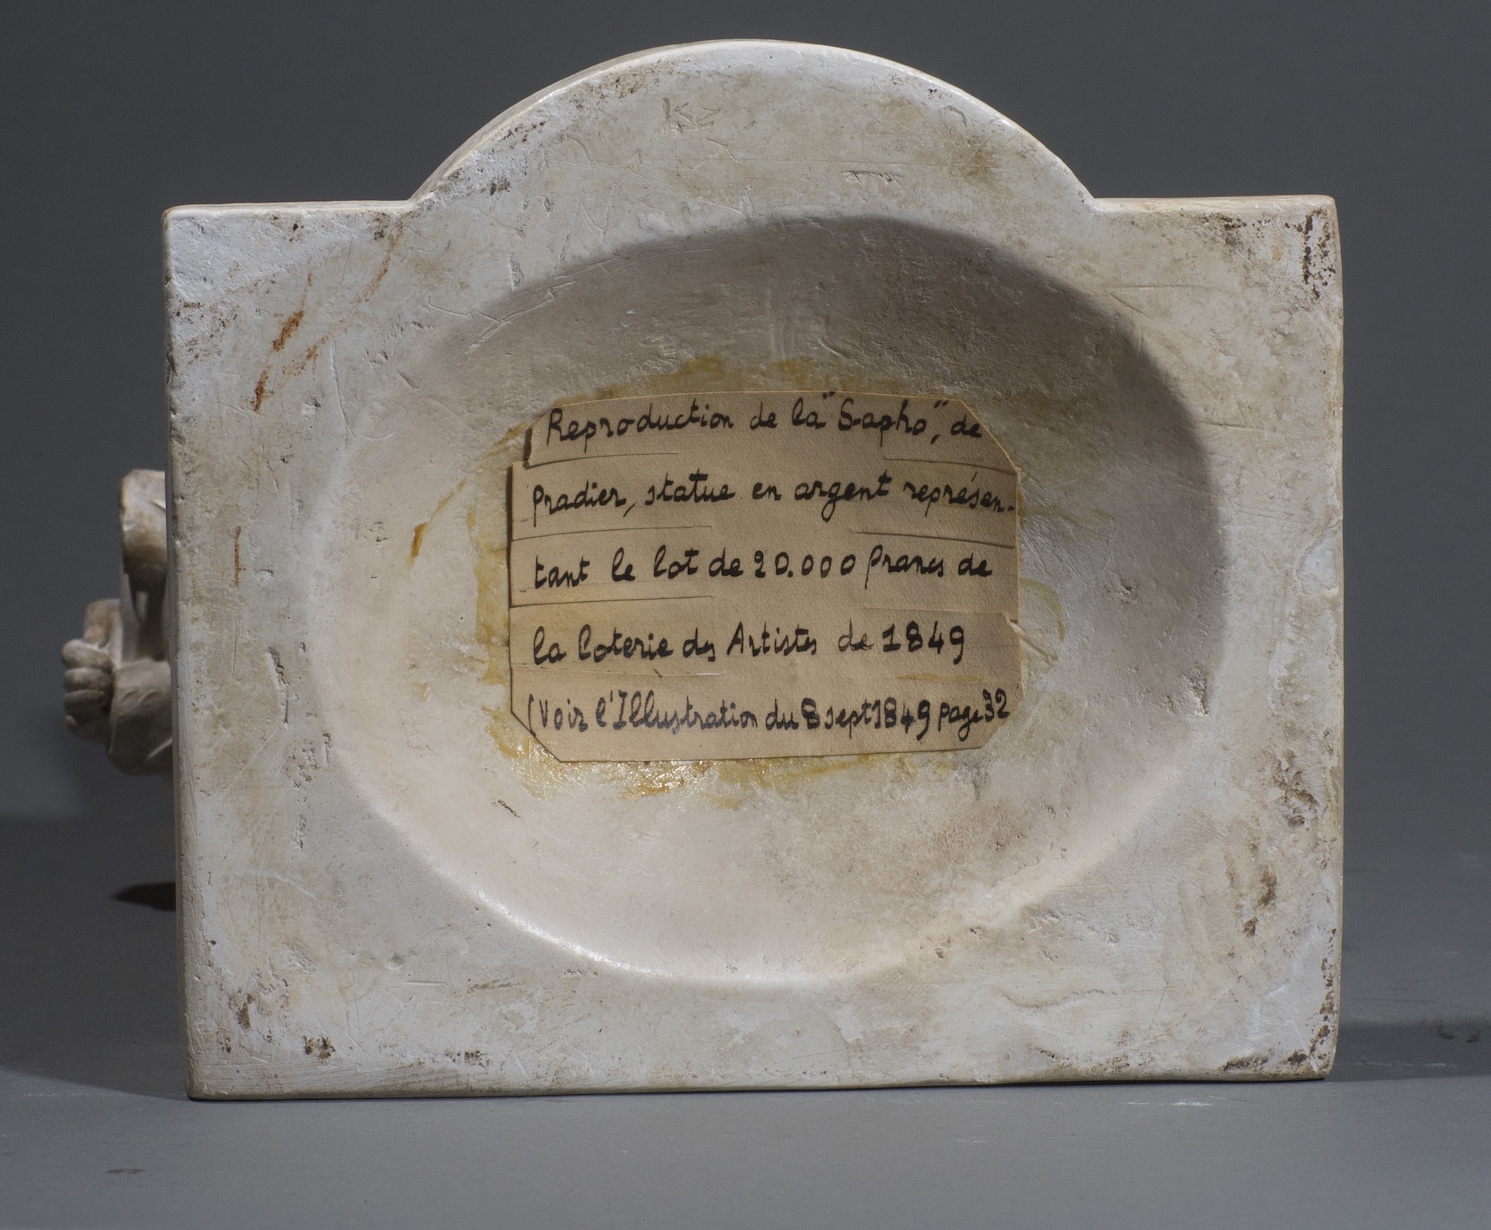 Reproduction de la "Sapho", de
Pradier, statue en argent représen-
tant le lot de 20.000 francs de
la loterie des Artistes de 1849
(Voir l'Illustration du 8 sept 1849 page 32